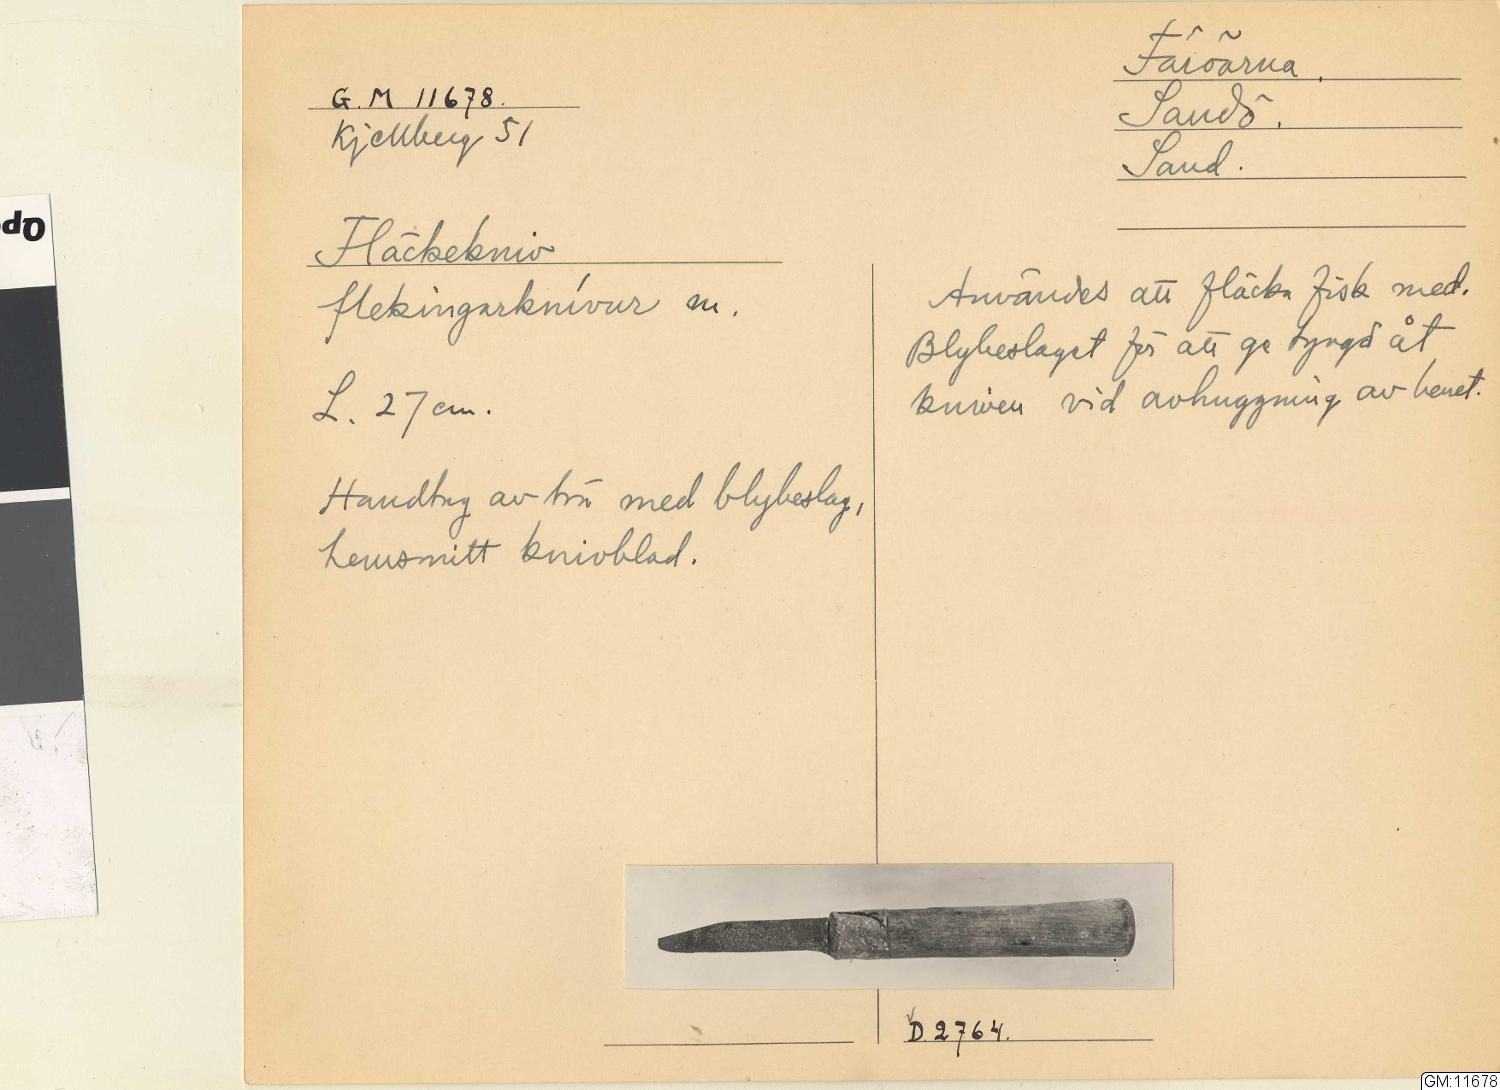 G.M 11678.
Kjellberg 51
Färöarna.
Sandö.
Sand.
Fläckekniv
flekingarknívur m.
L. 27 cm.
Handtag av trä med blybeslag,
hemsmitt knivblad.
Användes att fläcka fisk med.
Blybeslaget för att ge tyngd åt
kniven vid avhuggning av benet.
D. 2764.
GM:11678